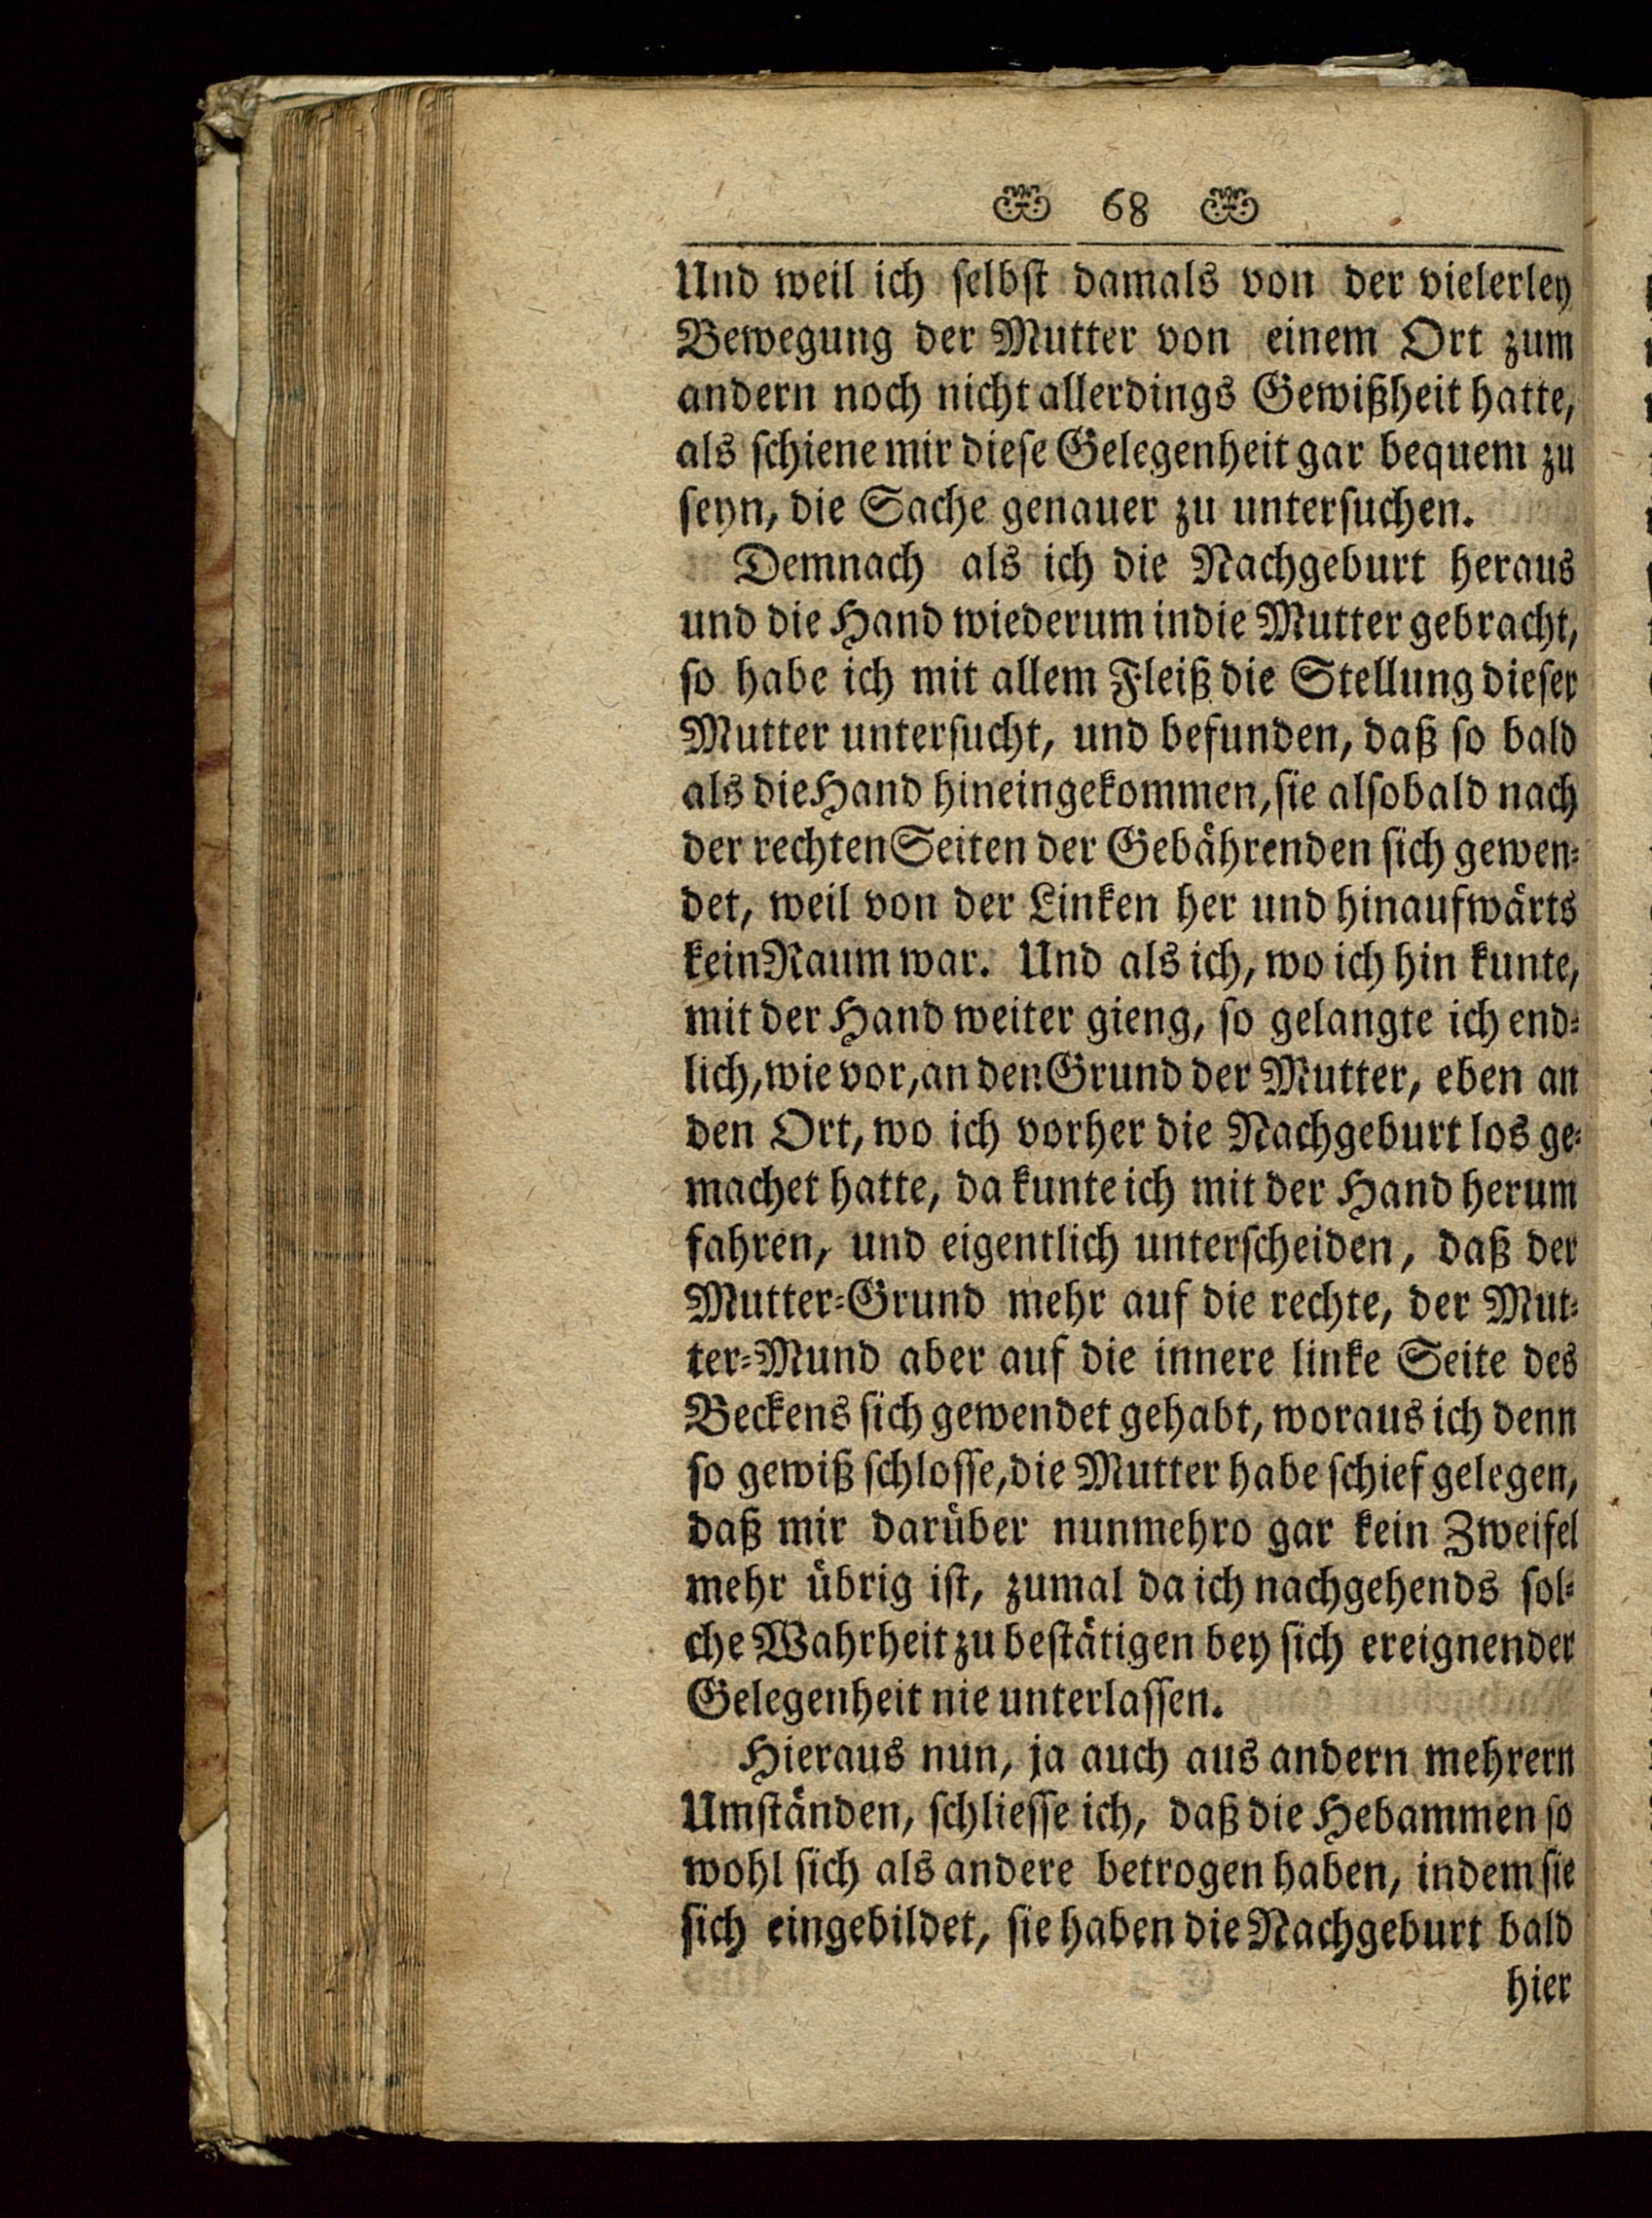 68
Und weil ich selbst damals von der vielerley
Bewegung der Mutter von einem Ort zum
andern noch nicht allerdings Gewißheit hatte,
als schiene mir diese Gelegenheit gar bequem zu
seyn, die Sache genauer zu untersuchen.
Demnach als ich die Nachgeburt heraus
und die Hand wiederum in die Mutter gebracht,
so habe ich mit allem Fleiß die Stellung dieser
Mutter untersucht, und befunden, daß so bald
als die Hand hineingekommen, sie alsobald nach
der rechten Seiten der Gebährenden sich gewen-
det, weil von der Linken her und hinaufwärts
kein Raum war. Und als ich, wo ich hin kunte,
mit der Hand weiter gieng, so gelangte ich end-
lich, wie vor, an den Grund der Mutter, eben an
den Ort, wo ich vorher die Nachgeburt los ge-
machet hatte, da kunte ich mit der Hand herum
fahren, und eigentlich unterscheiden, daß der
Mutter-Grund mehr auf die rechte, der Mut-
ter-Mund aber auf die innere linke Seite des
Beckens sich gewendet gehabt, woraus ich denn
so gewiß schlosse, die Mutter habe schief gelegen,
daß mir darüber nunmehro gar kein Zweifel
mehr übrig ist, zumal da ich nachgehends sol-
che Wahrheit zu bestätigen bey sich ereignender
Gelegenheit nie unterlassen.
Hieraus nun, ja auch aus andern mehrern
Umständen, schliesse ich, daß die Hebammen so
wohl sich als andere betrogen haben, indem sie
sich eingebildet, sie haben die Nachgeburt bald
hier